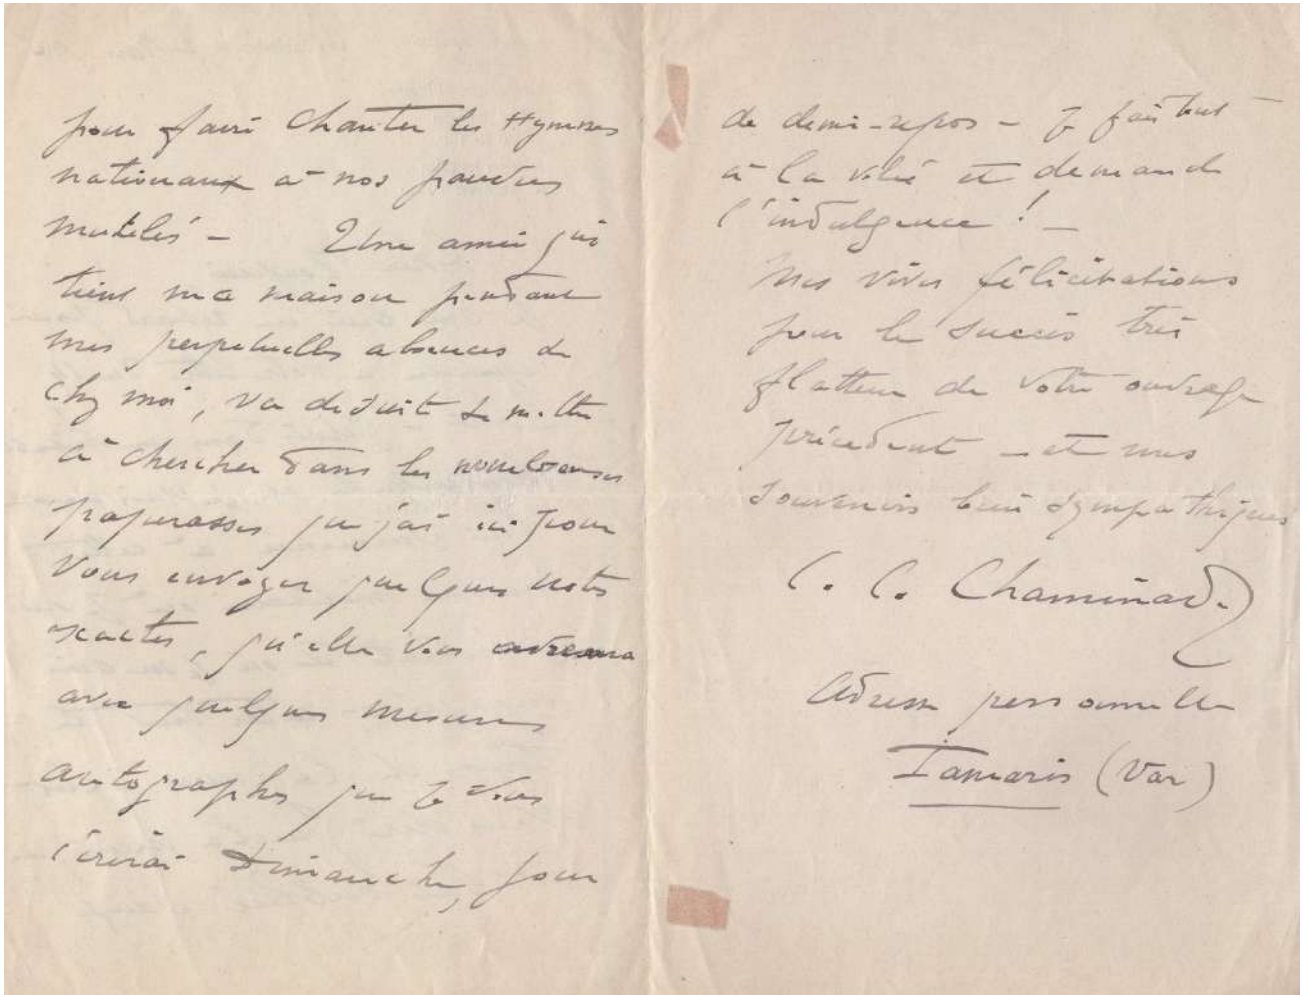 pour faire chanter les Hymnes
nationaux à nos pauvres
mutilés - Une amie qui
tient ma maison pendant
mes perpetuelles absences de
chez moi, va de suite se mettre
à chercher dans les nombreuses
paperasses que j'ai ici pour
vous envoyer quelques notes
exactes, qu'elle vous adressera
avec quelques mesures
autographes que je vous
écrirai Dimanche, jour
de demi-repos - Je fais tout
à la volée et demande
l'indulgence ! -
Mes vives félicitations
pour le succès très
flatteur de votre ouvrage
précédent - et mes
souvenirs bien sympathiques
C. C. Chaminade
Adresse personnelle
Tamaris (Var)